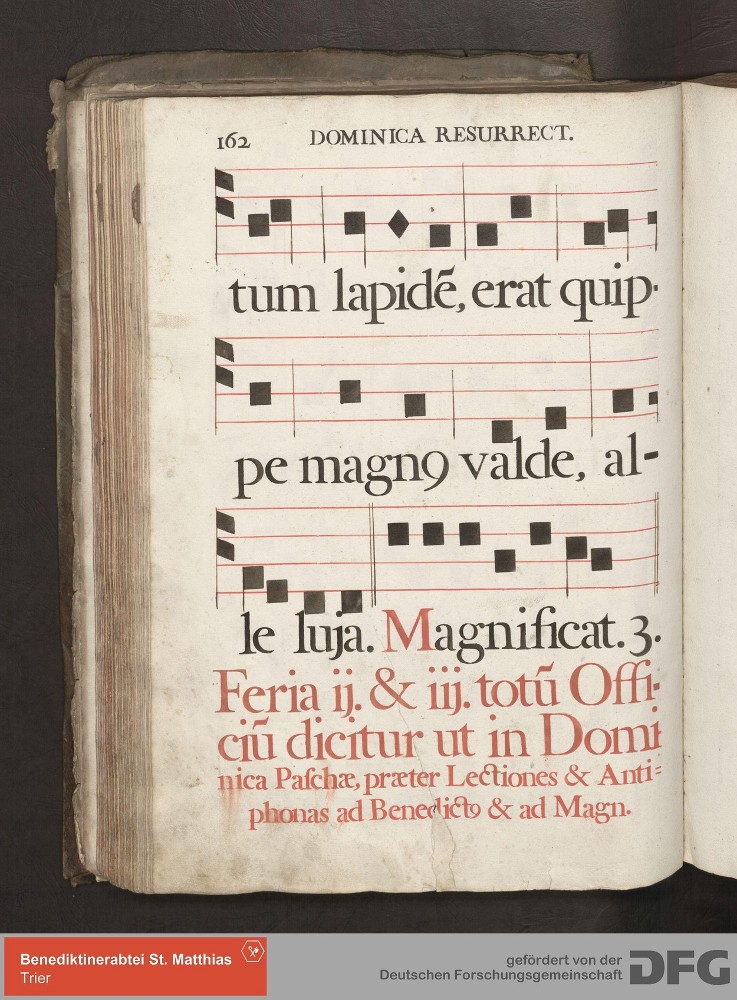 162 DOMINICA RESURRECT.
tum lapidē, erat quip-
pe magnꝯ valde, al-
le luja. Magnificat. 3.
Feria ij. & iij. totū Offi-
ciū dicitur ut in Domi
nica Paſchæ, præter Lectiones & Anti=
phonas ad Benedictꝯ & ad Magn.
Benediktinerabtei St. Matthias
Trier
gefördert von der
Deutschen Forschungsgemeinschaft DFG